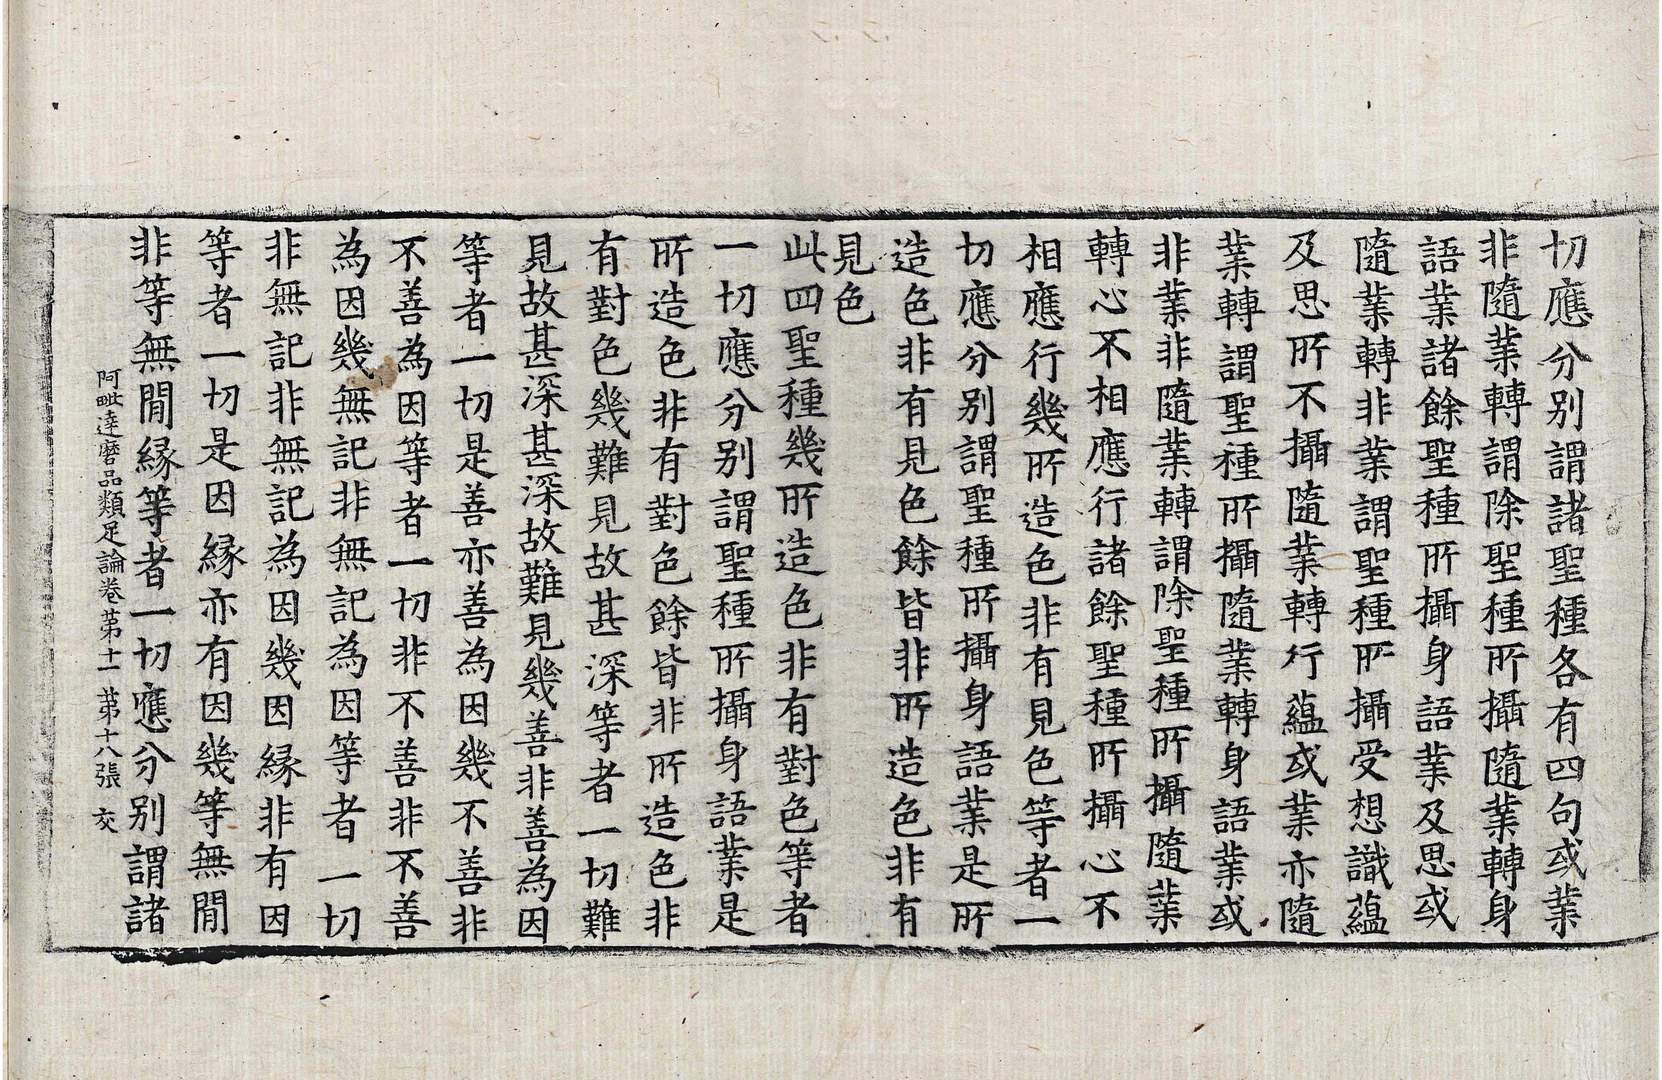 切應分別謂諸聖種各有四句或業
非隨業轉謂除聖種所攝隨業轉身
語業諸餘聖種所攝身語業及思或
隨業轉非業謂聖種所攝受想識蘊
及思所不攝隨業轉行蘊或業亦隨
業轉謂聖種所攝隨業轉身語業或
非業非隨業轉謂除聖種所攝隨業
轉心不相應行諸餘聖種所攝心不
相應行幾所造色非有見色等者一
切應分別謂聖種所攝身語業是所
造色非有見色餘皆非所造色非有
見色
此四聖種幾所造色非有對色等者
一切應分別謂聖種所攝身語業是
所造色非有對色餘皆非所造色非
有對色幾難見故甚深等者一切難
見故甚深甚深故難見幾善非善為因
等者一切是善亦善為因幾不善非
不善為因等者一切非不善非不善
為因幾無記非無記為因等者一切
非無記非無記為因幾因緣非有因
等者一切是因緣亦有因幾等無間
非等無間緣等者一切應分別謂諸
阿毗達磨品類足論卷第十一 第十八張 交